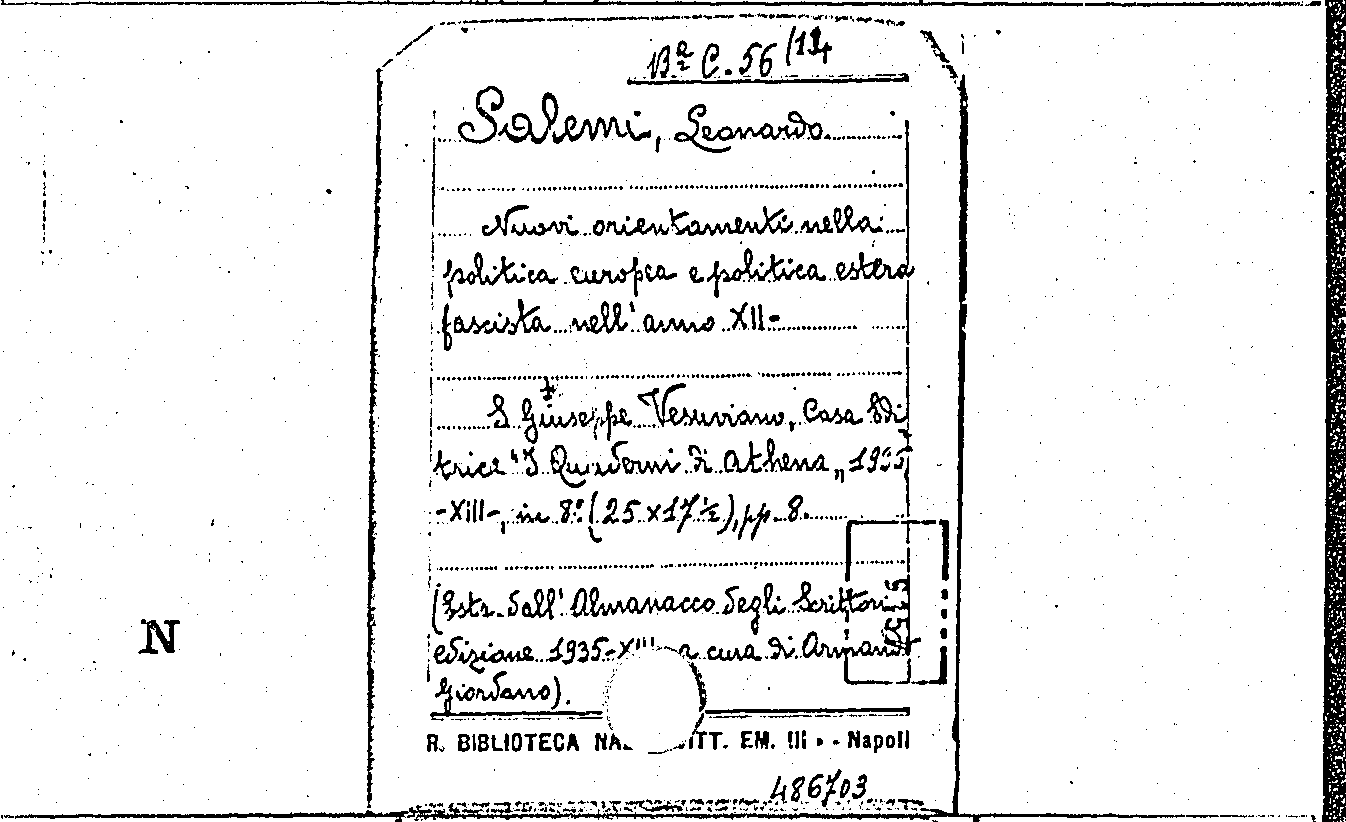 Bª C. 56 (14
Salemi, Leonardo
Nuovi orientamenti nella
politica europea e politica estera
fascista nell'anno XII-
S. Giuseppe Vesuviano, Casa Edi
trice "I Quaderni di Athena", 1935
-XIII-, in 8.° (25 x 17 ½), pp. 8.
(Estr. dall'Almanacco degli Scrittori
edizione 1935-XIII a cura di Armando
Giordano).
R. BIBLIOTECA NAZ ITT. EM. III - Napoli
486703
N